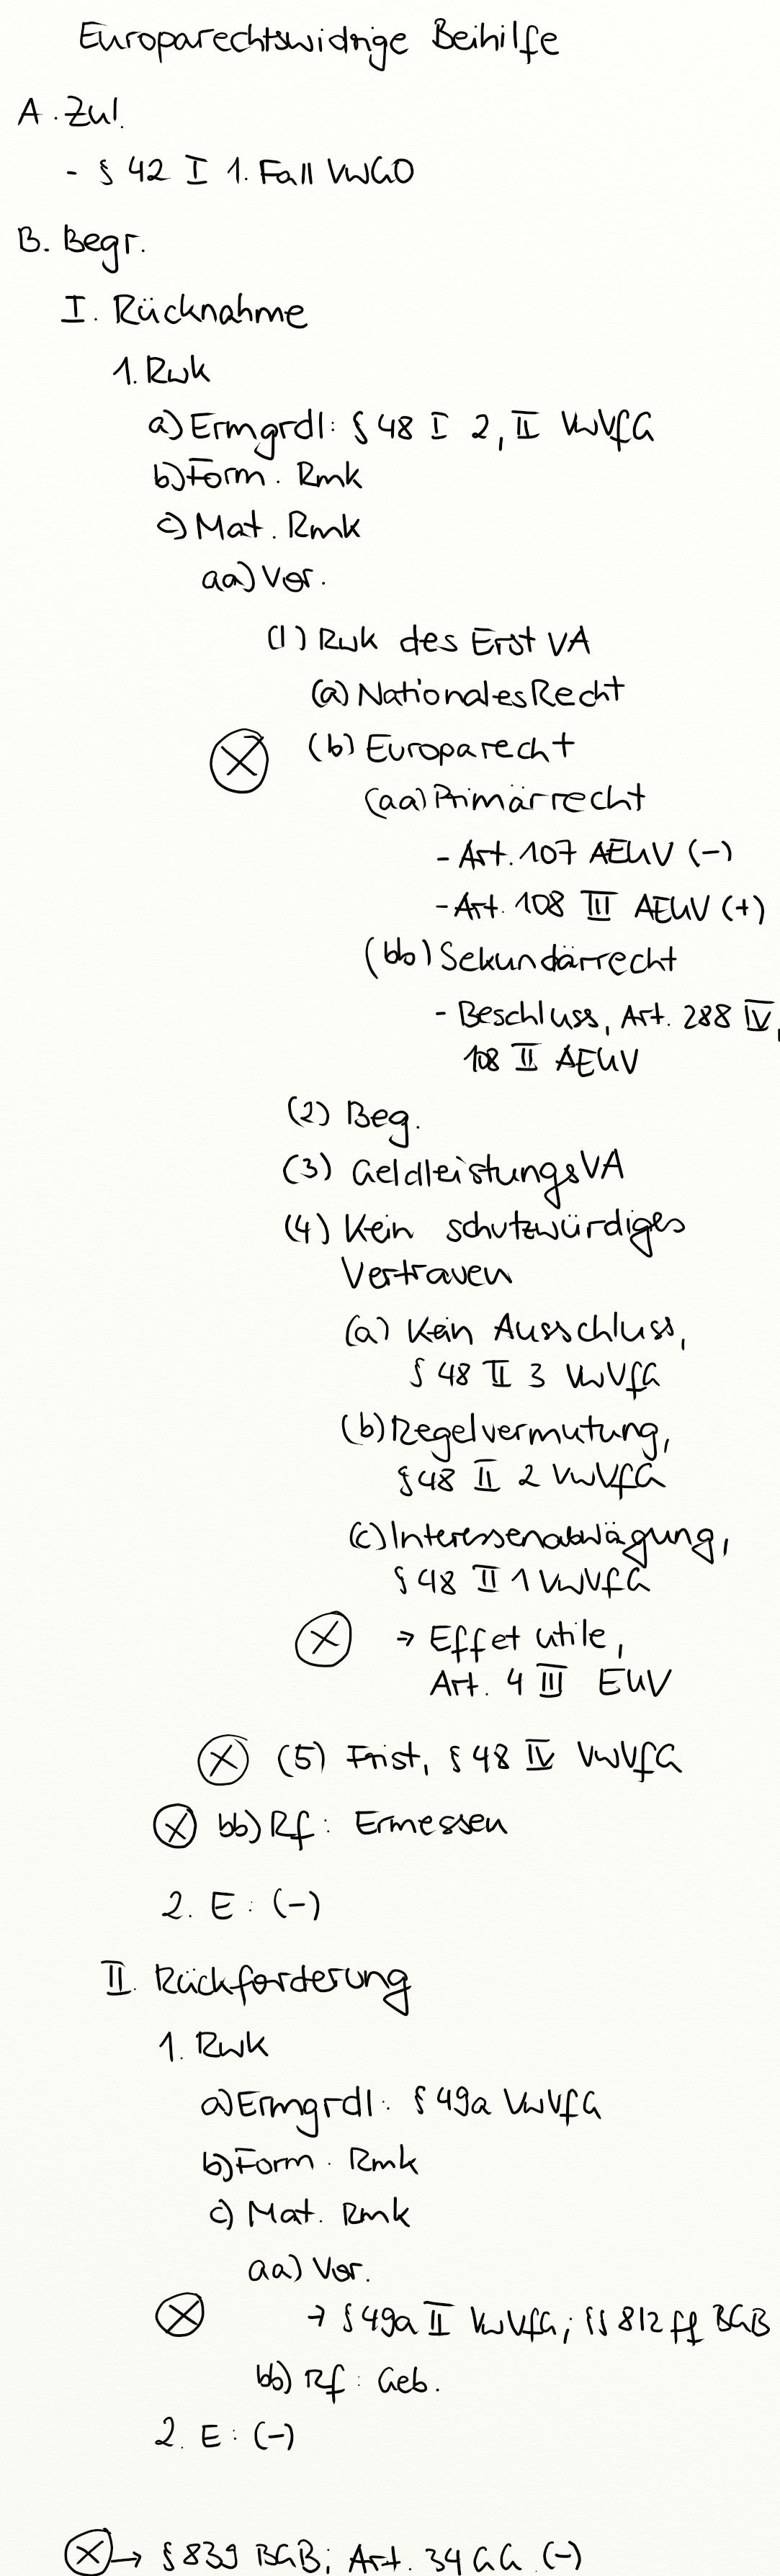 Europarechtswidrige Beihilfe
A. Zul.
- § 42 I 1. Fall VwGO
B. Begr.
I. Rücknahme
1. Rwk
a) Ermgrdl: § 48 I 2, II VwVfG
b) Form. Rmk
c) Mat. Rmk
aa) Vor.
(1) Rwk des Erst VA
(a) Nationales Recht
(b) Europarecht
(aa) Primärrecht
- Art. 107 AEUV (-)
- Art. 108 III AEUV (+)
(bb) Sekundärrecht
- Beschluss, Art. 288 IV,
108 II AEUV
(2) Beg.
(3) GeldleistungsVA
(4) Kein schutzwürdiges
Vertrauen
(a) Kein Ausschluss,
§ 48 II 3 VwVfG
(b) Regelvermutung,
§ 48 II 2 VwVfG
(c) Interessenabwägung,
§ 48 II 1 VwVfG
→ Effet utile,
Art. 4 III EUV
(5) Frist, § 48 IV VwVfG
bb) Rf: Ermessen
2. E: (-)
II. Rückforderung
1. Rwk
a) Ermgrdl: § 49a VwVfG
b) Form. Rmk
c) Mat. Rmk
aa) Vor.
→ § 49a II VwVfG; §§ 812 ff BGB
bb) Rf: Geb.
2. E: (-)
→ § 839 BGB; Art. 34 GG (-)